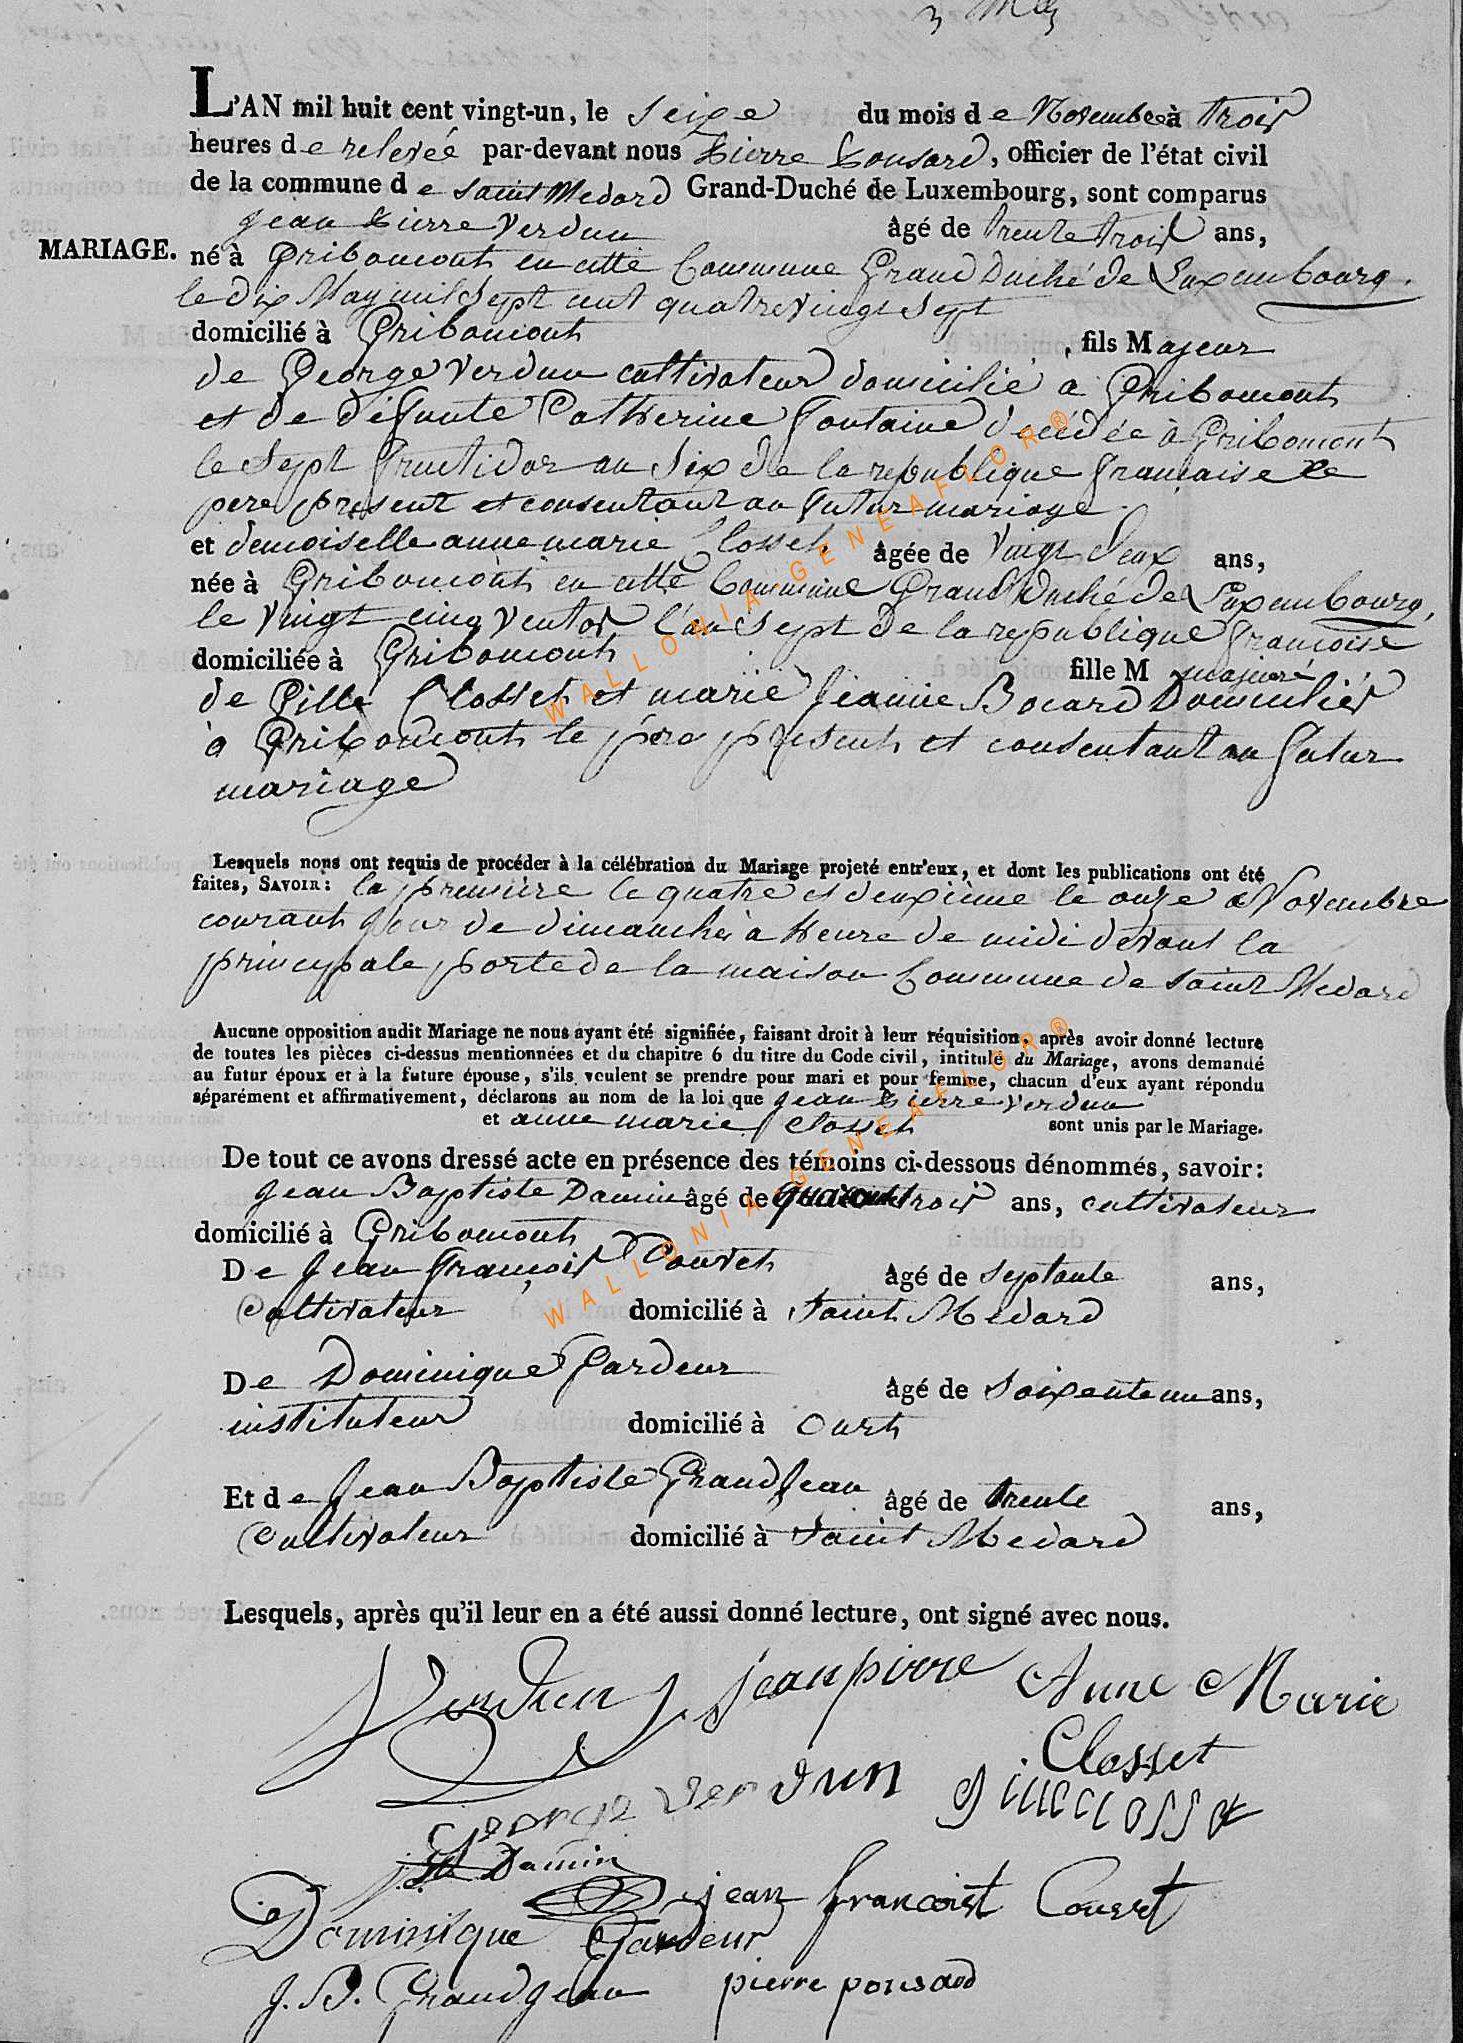 L'AN mil huit cent vingt-un, le seize du mois de Novembre à trois
heures de relevée par-devant nous Pierre Ponsard, officier de l'état civil
de la commune de saint Medard Grand-Duché de Luxembourg, sont comparus
jean Pierre Verdun âgé de trente trois ans,
MARIAGE. né à Gribomont en cette Commune Grand Duché de Luxembourg.
le dix May mil sept cent quatre vingt sept
domicilié à Gribomont, fils Majeur
de George Verdun cultivateur domicilié à Gribomont
et de défunte Catherine fontaine décédée à Gribomont
le sept fructidor an six de la republique francaise le
pere present et consentant au futur mariage.
et demoiselle anne marie Closset âgée de vingt deux ans,
née à Gribomont en cette Commune Grand Duché de Luxembourg,
le vingt cinq ventos l'an sept de la republique francoise
domiciliée à Gribomont fille M majeure
de Gille Closset et marie jeanne Bocard Domiciliés
à Gribomont le pere present et consentant au futur
mariage
Lesquels nous ont requis de procéder à la célébration du Mariage projeté entr'eux, et dont les publications ont été
faites, SAVOIR: la premiere le quatre et deuxieme le onze Novembre
courant jour de dimanche à heure de midi devant la
principale porte de la maison Commune de saint Medard
Aucune opposition audit Mariage ne nous ayant été signifiée, faisant droit à leur réquisition, après avoir donné lecture
de toutes les pièces ci-dessus mentionnées et du chapitre 6 du titre du Code civil, intitulé du Mariage, avons demandé
au futur époux et à la future épouse, s'ils veulent se prendre pour mari et pour femme, chacun d'eux ayant répondu
séparément et affirmativement, déclarons au nom de la loi que jean Pierre Verdun
et anne marie Closset sont unis par le Mariage.
De tout ce avons dressé acte en présence des témoins ci-dessous dénommés, savoir:
jean Baptiste Damin âgé de quarante trois ans, cultivateur
domicilié à Gribomont
De jean francois Couvet âgé de septante ans,
Cultivateur domicilié à saint Medard
De Dominique Gardeur âgé de soixente un ans,
instituteur domicilié à Ourt
Et de jean Baptiste Grandjean âgé de trente ans,
Cultivateur domicilié à saint Medard
Lesquels, après qu'il leur en a été aussi donné lecture, ont signé avec nous.
Verdun jean pierre Anne Marie
Closset
george verdun gille closse
Damin
jean francoist Couvet
Dominique Gardeur
J. B. Grandjean pierre ponsard
WALLONIA-GENEAFLOR®
WALLONIA-GENEAFLOR®